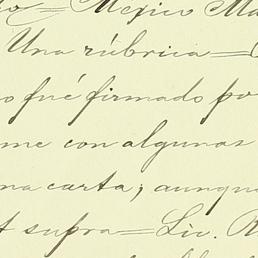 Mexico Ma
Una rúbrica=
o fué firmado po
me con algunas
na carta; aunqu
t supra=Lic. R